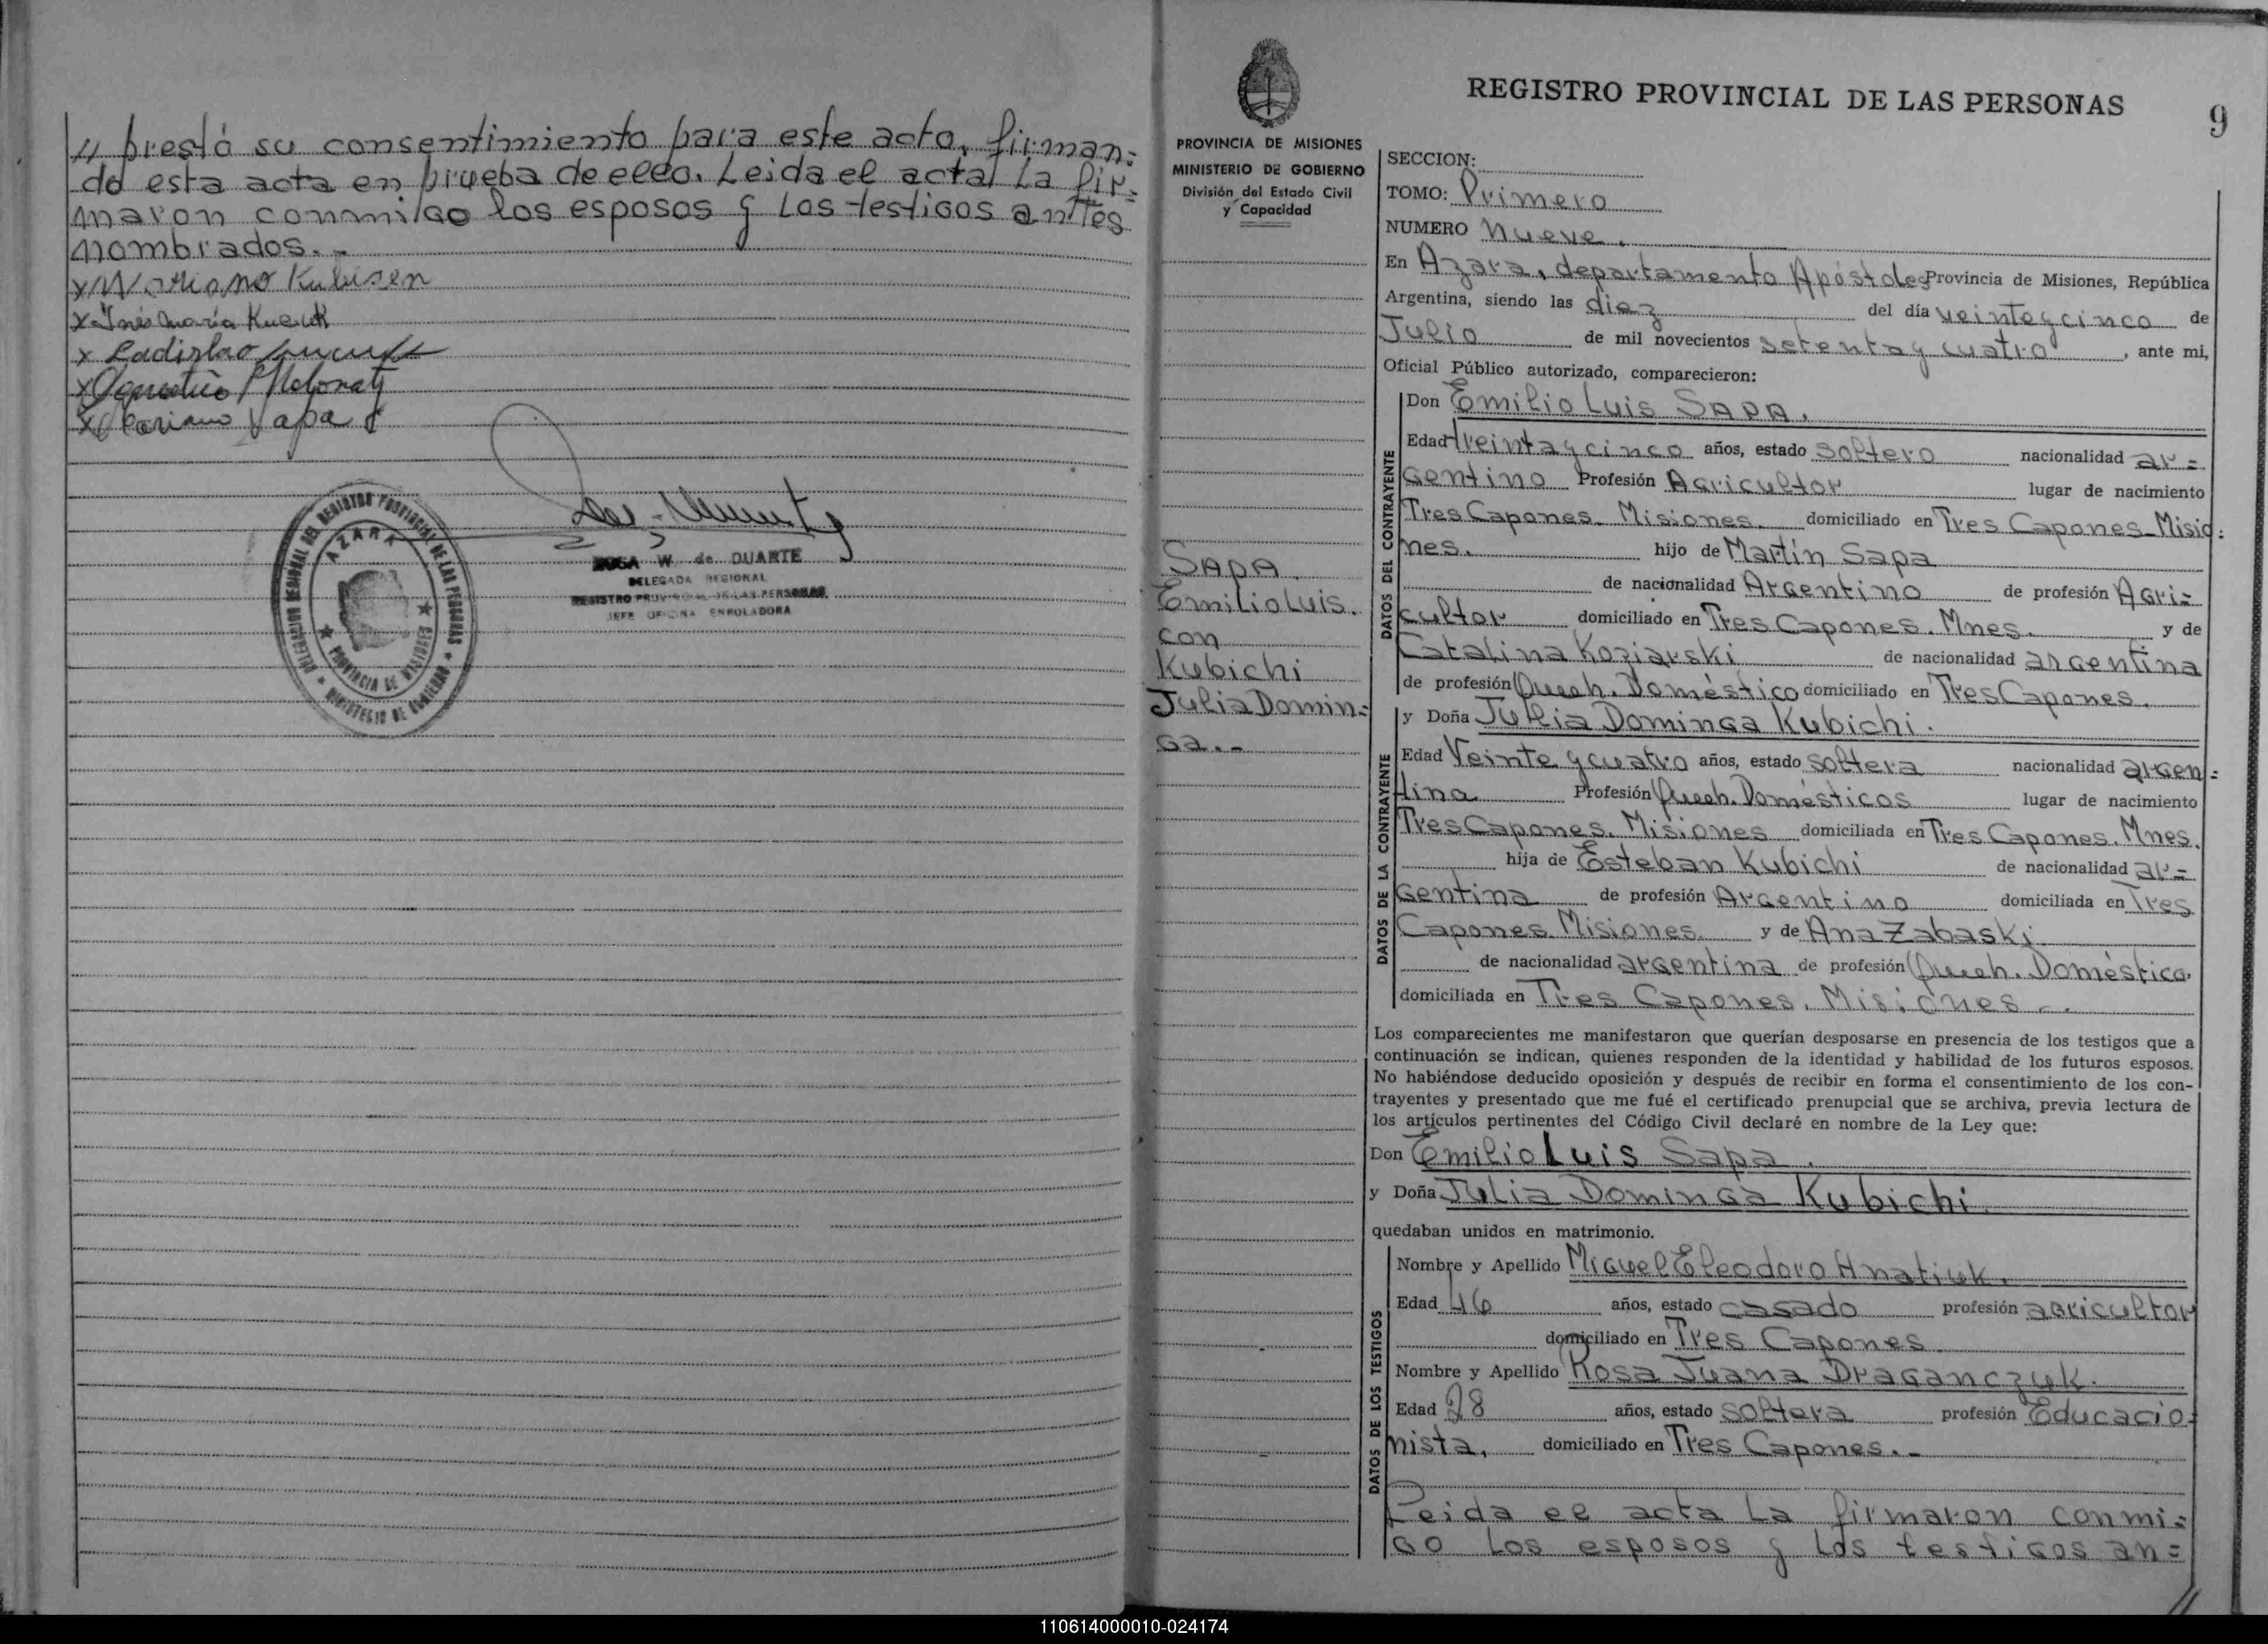 // prestó su consentimiento para este acto, firman=
do esta acta en prueba de ello. Leida el acta, La fir=
maron conmigo los esposos y Los testigos antes
nombrados.-
x Mariano Kubisen
x Inés María
x Ladislao
x
x Mariano Sapa
DELEGACION REGIONAL DEL REGISTRO PROVINCIAL DE LAS PERSONAS
AZARA
PROVINCIA DE MISIONES
MINISTERIO DE GOBIERNO
ROSA W. de DUARTE
DELEGADA REGIONAL
REGISTRO PROVINCIAL DE LAS PERSONAS
JEFE OFICINA ENROLADORA
REGISTRO PROVINCIAL DE LAS PERSONAS
9
PROVINCIA DE MISIONES
MINISTERIO DE GOBIERNO
División del Estado Civil
y Capacidad
SAPA
Emilio Luis.
con
Kubichi
Julia Domin=
ga.-
SECCION:
TOMO: Primero
NUMERO Nueve.
En Azara, departamento Apóstoles Provincia de Misiones, República
Argentina, siendo las diez del día veinteycinco de
Julio de mil novecientos setenta y cuatro, ante mi,
Oficial Público autorizado, comparecieron:
DATOS DEL CONTRAYENTE
Don Emilio Luis SAPA.
Edad treinta y cinco años, estado soltero nacionalidad ar=
gentino Profesión Agricultor lugar de nacimiento
Tres Capones. Misiones. domiciliado en Tres Capones-Misio=
nes. hijo de Martín Sapa
de nacionalidad Argentino de profesión Agri=
cultor domiciliado en Tres Capones. Mnes. y de
Catalina Koziarski de nacionalidad argentina
de profesión Queh. Doméstico domiciliado en Tres Capones.
DATOS DE LA CONTRAYENTE
y Doña Julia Dominga Kubichi.
Edad Veinte y cuatro años, estado soltera nacionalidad argen=
tina Profesión Queh. Domésticos lugar de nacimiento
Tres Capones. Misiones domiciliada en Tres Capones. Mnes.
hija de Esteban Kubichi de nacionalidad ar=
gentina de profesión Argentino domiciliada en Tres
Capones. Misiones. y de Ana Zabaski.
de nacionalidad argentina de profesión Queh. Doméstica,
domiciliada en Tres Capones. Misiones.-
Los comparecientes me manifestaron que querían desposarse en presencia de los testigos que a
continuación se indican, quienes responden de la identidad y habilidad de los futuros esposos.
No habiéndose deducido oposición y después de recibir en forma el consentimiento de los con-
trayentes y presentado que me fué el certificado prenupcial que se archiva, previa lectura de
los artículos pertinentes del Código Civil declaré en nombre de la Ley que:
Don Emilio Luis Sapa.
y Doña Julia Dominga Kubichi.
quedaban unidos en matrimonio.
DATOS DE LOS TESTIGOS
Nombre y Apellido Miguel Eleodoro Hnatiuk.
Edad 46 años, estado casado profesión agricultor
domiciliado en Tres Capones.
Nombre y Apellido Rosa Juana Draganczuk.
Edad 28 años, estado soltera profesión Educacio=
nista, domiciliado en Tres Capones.-
Leida el acta La firmaron conmi=
go Los esposos y Los testigos an=
//
110614000010-024174